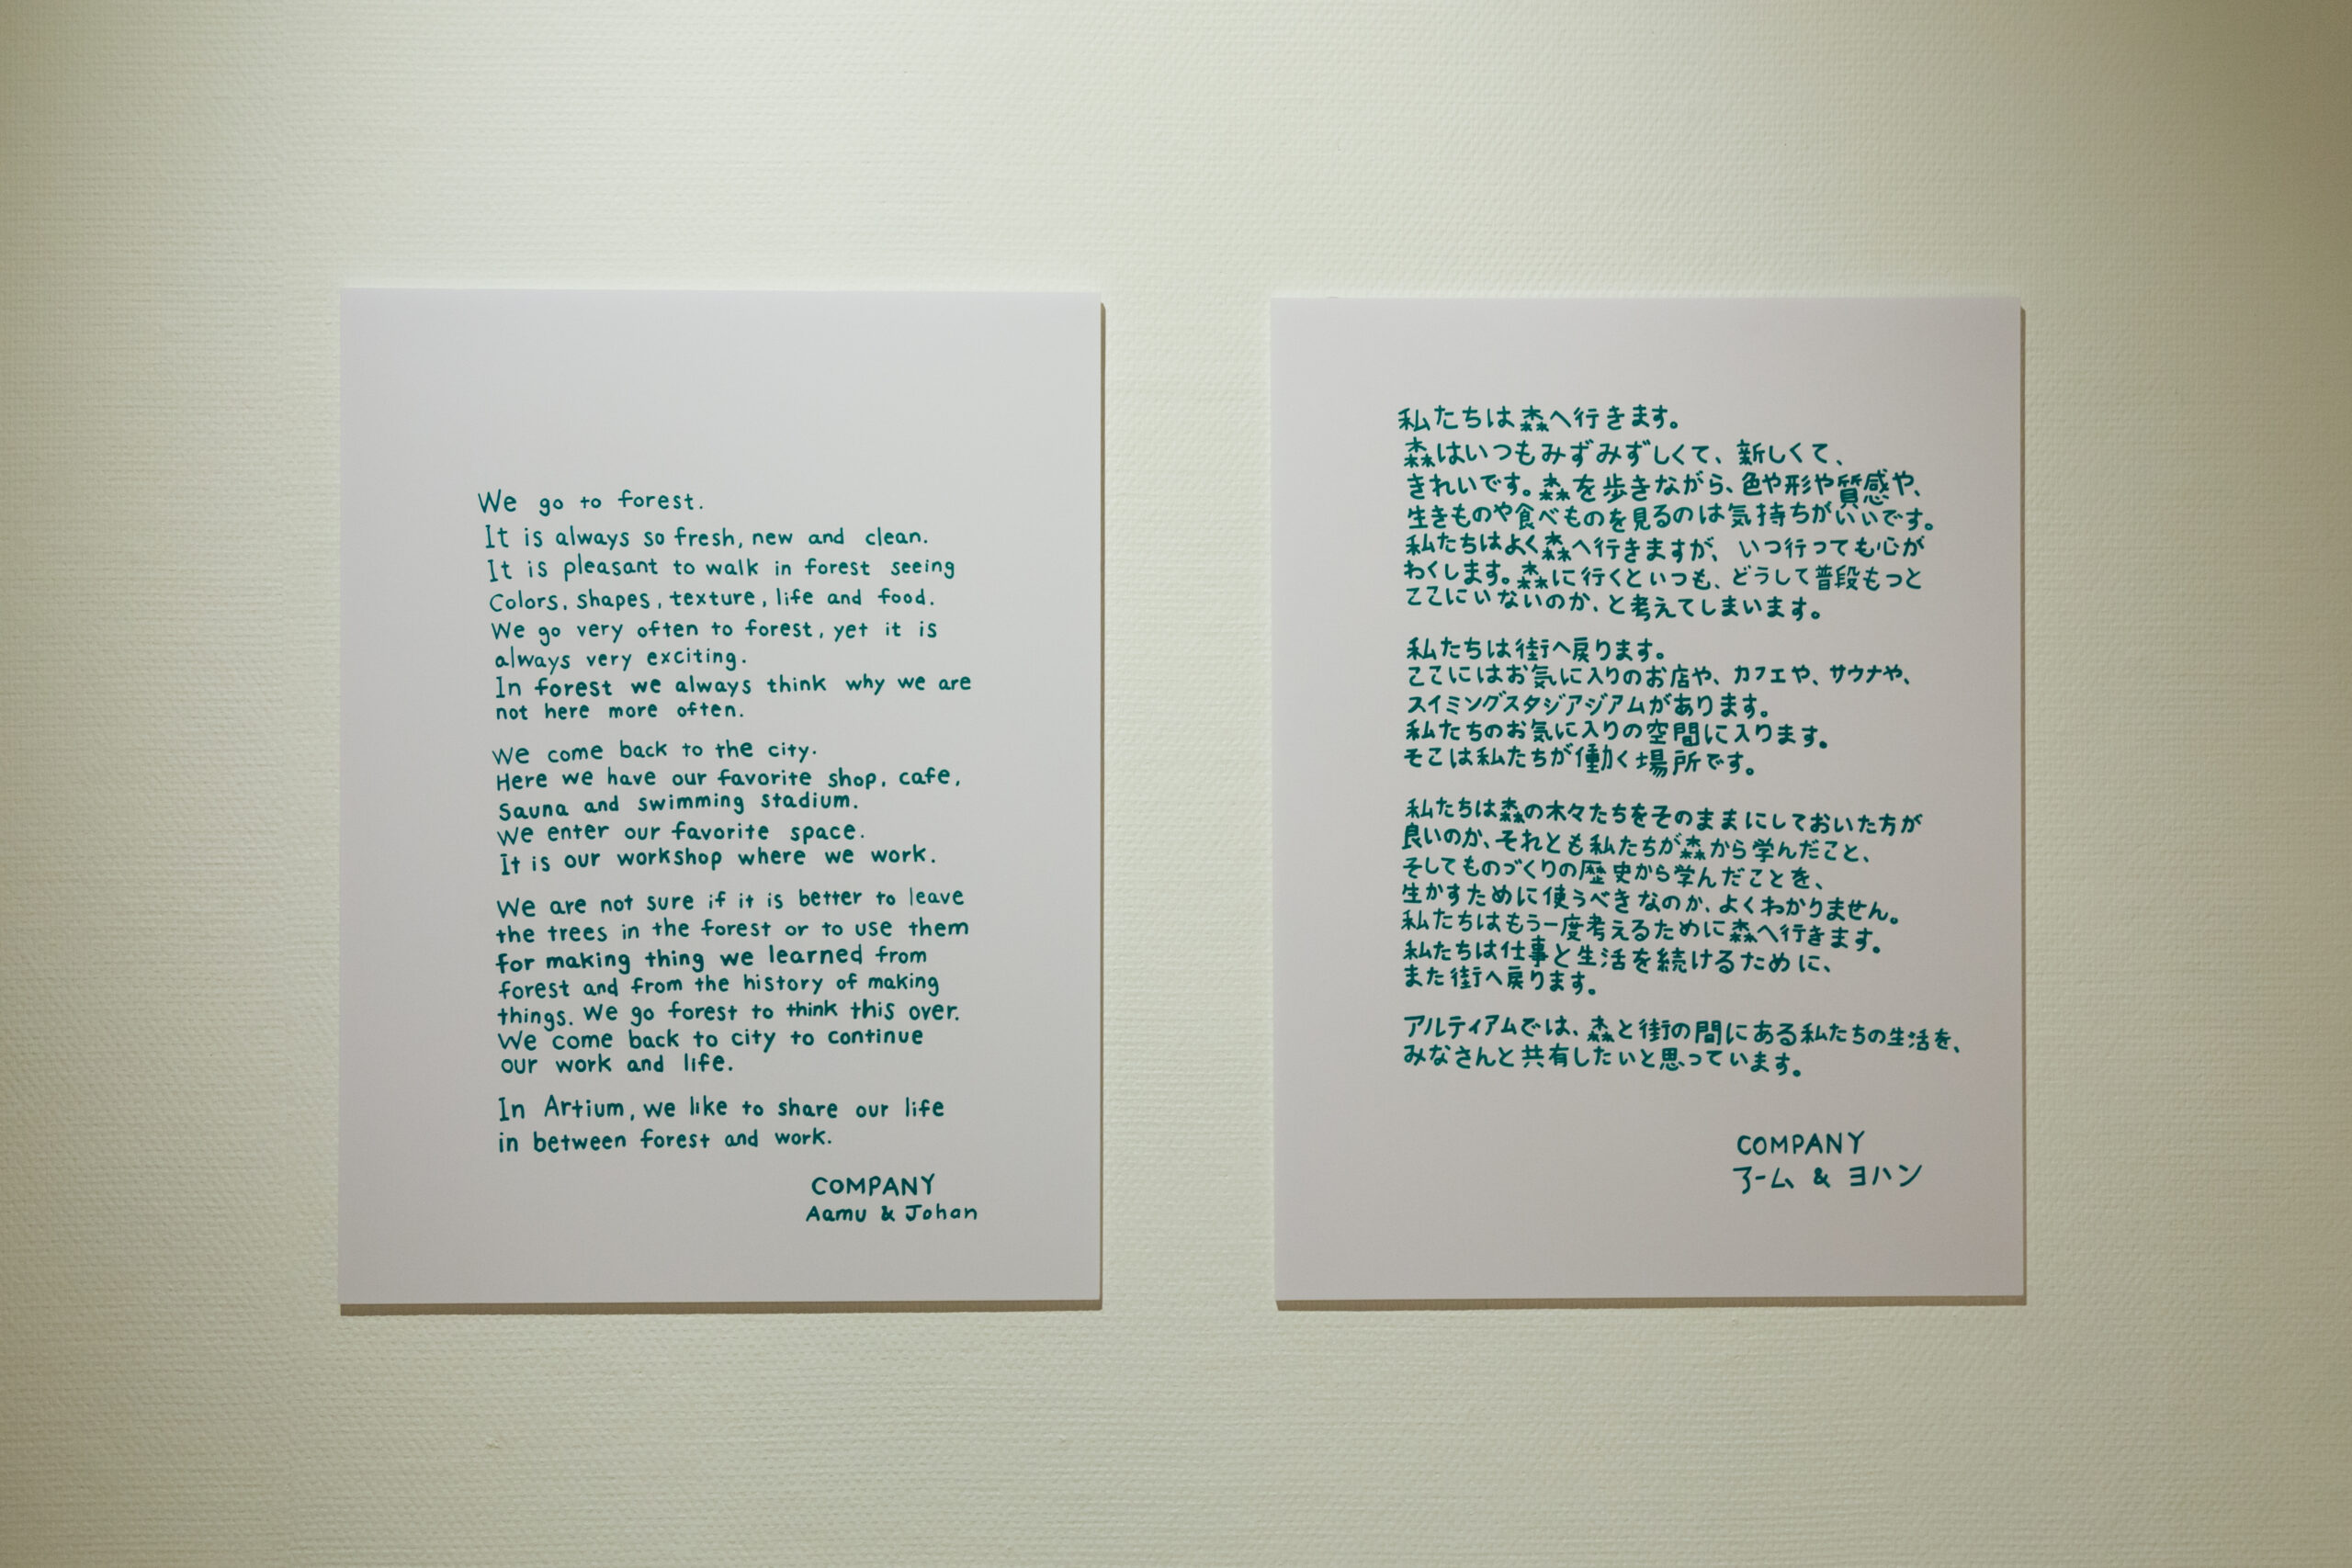 We go to forest.
It is always so fresh, new and clean.
It is pleasant to walk in forest seeing
Colors, shapes, texture, life and food.
We go very often to forest, yet it is
always very exciting.
In forest we always think why we are
not here more often.
We come back to the city.
Here we have our favorite shop, cafe,
Sauna and swimming stadium.
We enter our favorite space.
It is our workshop where we work.
We are not sure if it is better to leave
the trees in the forest or to use them
for making thing we learned from
forest and from the history of making
things. We go forest to think this over.
We come back to city to continue
our work and life.
In Artium, we like to share our life
in between forest and work.
COMPANY
Aamu & Johan
私たちは森へ行きます。
森はいつもみずみずしくて、新しくて、
きれいです。森を歩きながら、色や形や質感や、
生きものや食べものを見るのは気持ちがいいです。
私たちはよく森へ行きますが、いつ行っても心が
わくします。森に行くといつも、どうして普段もっと
ここにいないのか、と考えてしまいます。
私たちは街へ戻ります。
ここにはお気に入りのお店や、カフェや、サウナや、
スイミングスタジアジアムがあります。
私たちのお気に入りの空間に入ります。
そこは私たちが働く場所です。
私たちは森の木々たちをそのままにしておいた方が
良いのか、それとも私たちが森から学んだこと、
そしてものづくりの歴史から学んだことを、
生かすために使うべきなのか、よくわかりません。
私たちはもう一度考えるために森へ行きます。
私たちは仕事と生活を続けるために、
また街へ戻ります。
アルティアムでは、森と街の間にある私たちの生活を、
みなさんと共有したいと思っています。
COMPANY
アーム & ヨハン